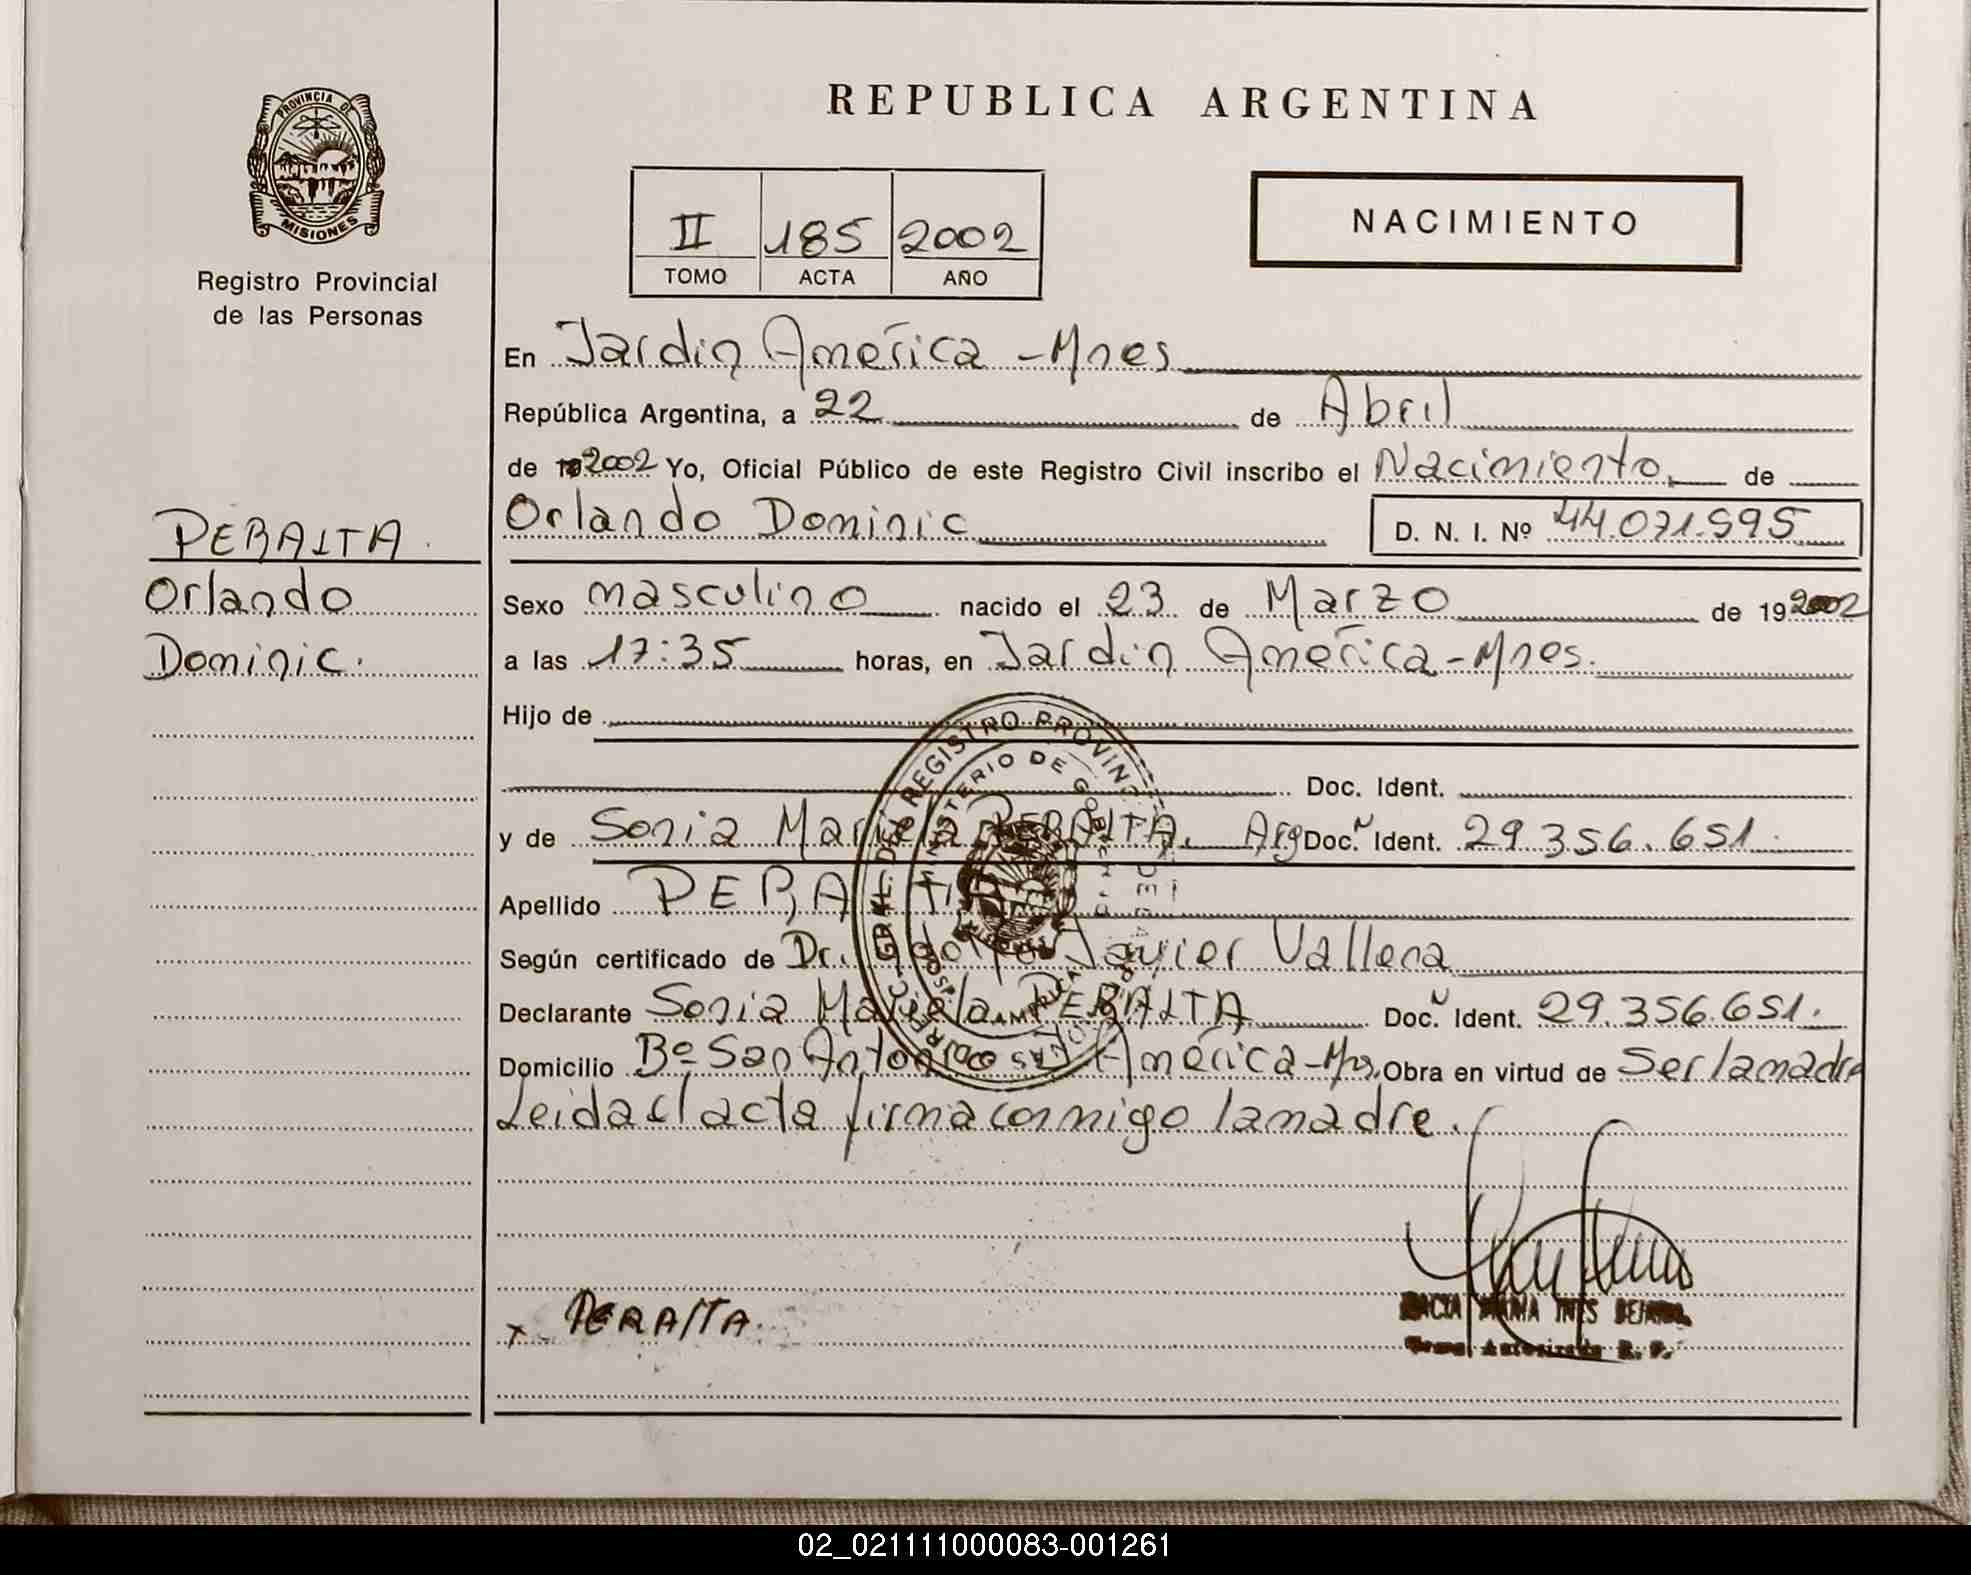 REPUBLICA ARGENTINA
PROVINCIA DE
MISIONES
Registro Provincial
de las Personas
II 185 2002
TOMO ACTA AÑO
NACIMIENTO
PERALTA
Orlando
Dominic.
En Jardin América - Mnes
República Argentina, a 22 de Abril
de 2002 Yo, Oficial Público de este Registro Civil inscribo el Nacimiento de
Orlando Dominic D. N. I. Nº 44.071.595
Sexo masculino nacido el 23 de Marzo de 19 2002
a las 17:35 horas, en Jardin América - Mnes.
Hijo de
Doc. Ident.
y de Sonia Mariela PERALTA. Arg Doc.N Ident. 29.356.651.
Apellido PERALTA
Según certificado de Dr. Javier Vallena
Declarante Sonia Mariela PERALTA Doc.N Ident. 29.356.651.
Domicilio Bº San Antonio América - Mns. Obra en virtud de Ser la madre
Leida el acta firma conmigo la madre.
x PERALTA.
INES
Autorizada R. P.
02_021111000083-001261